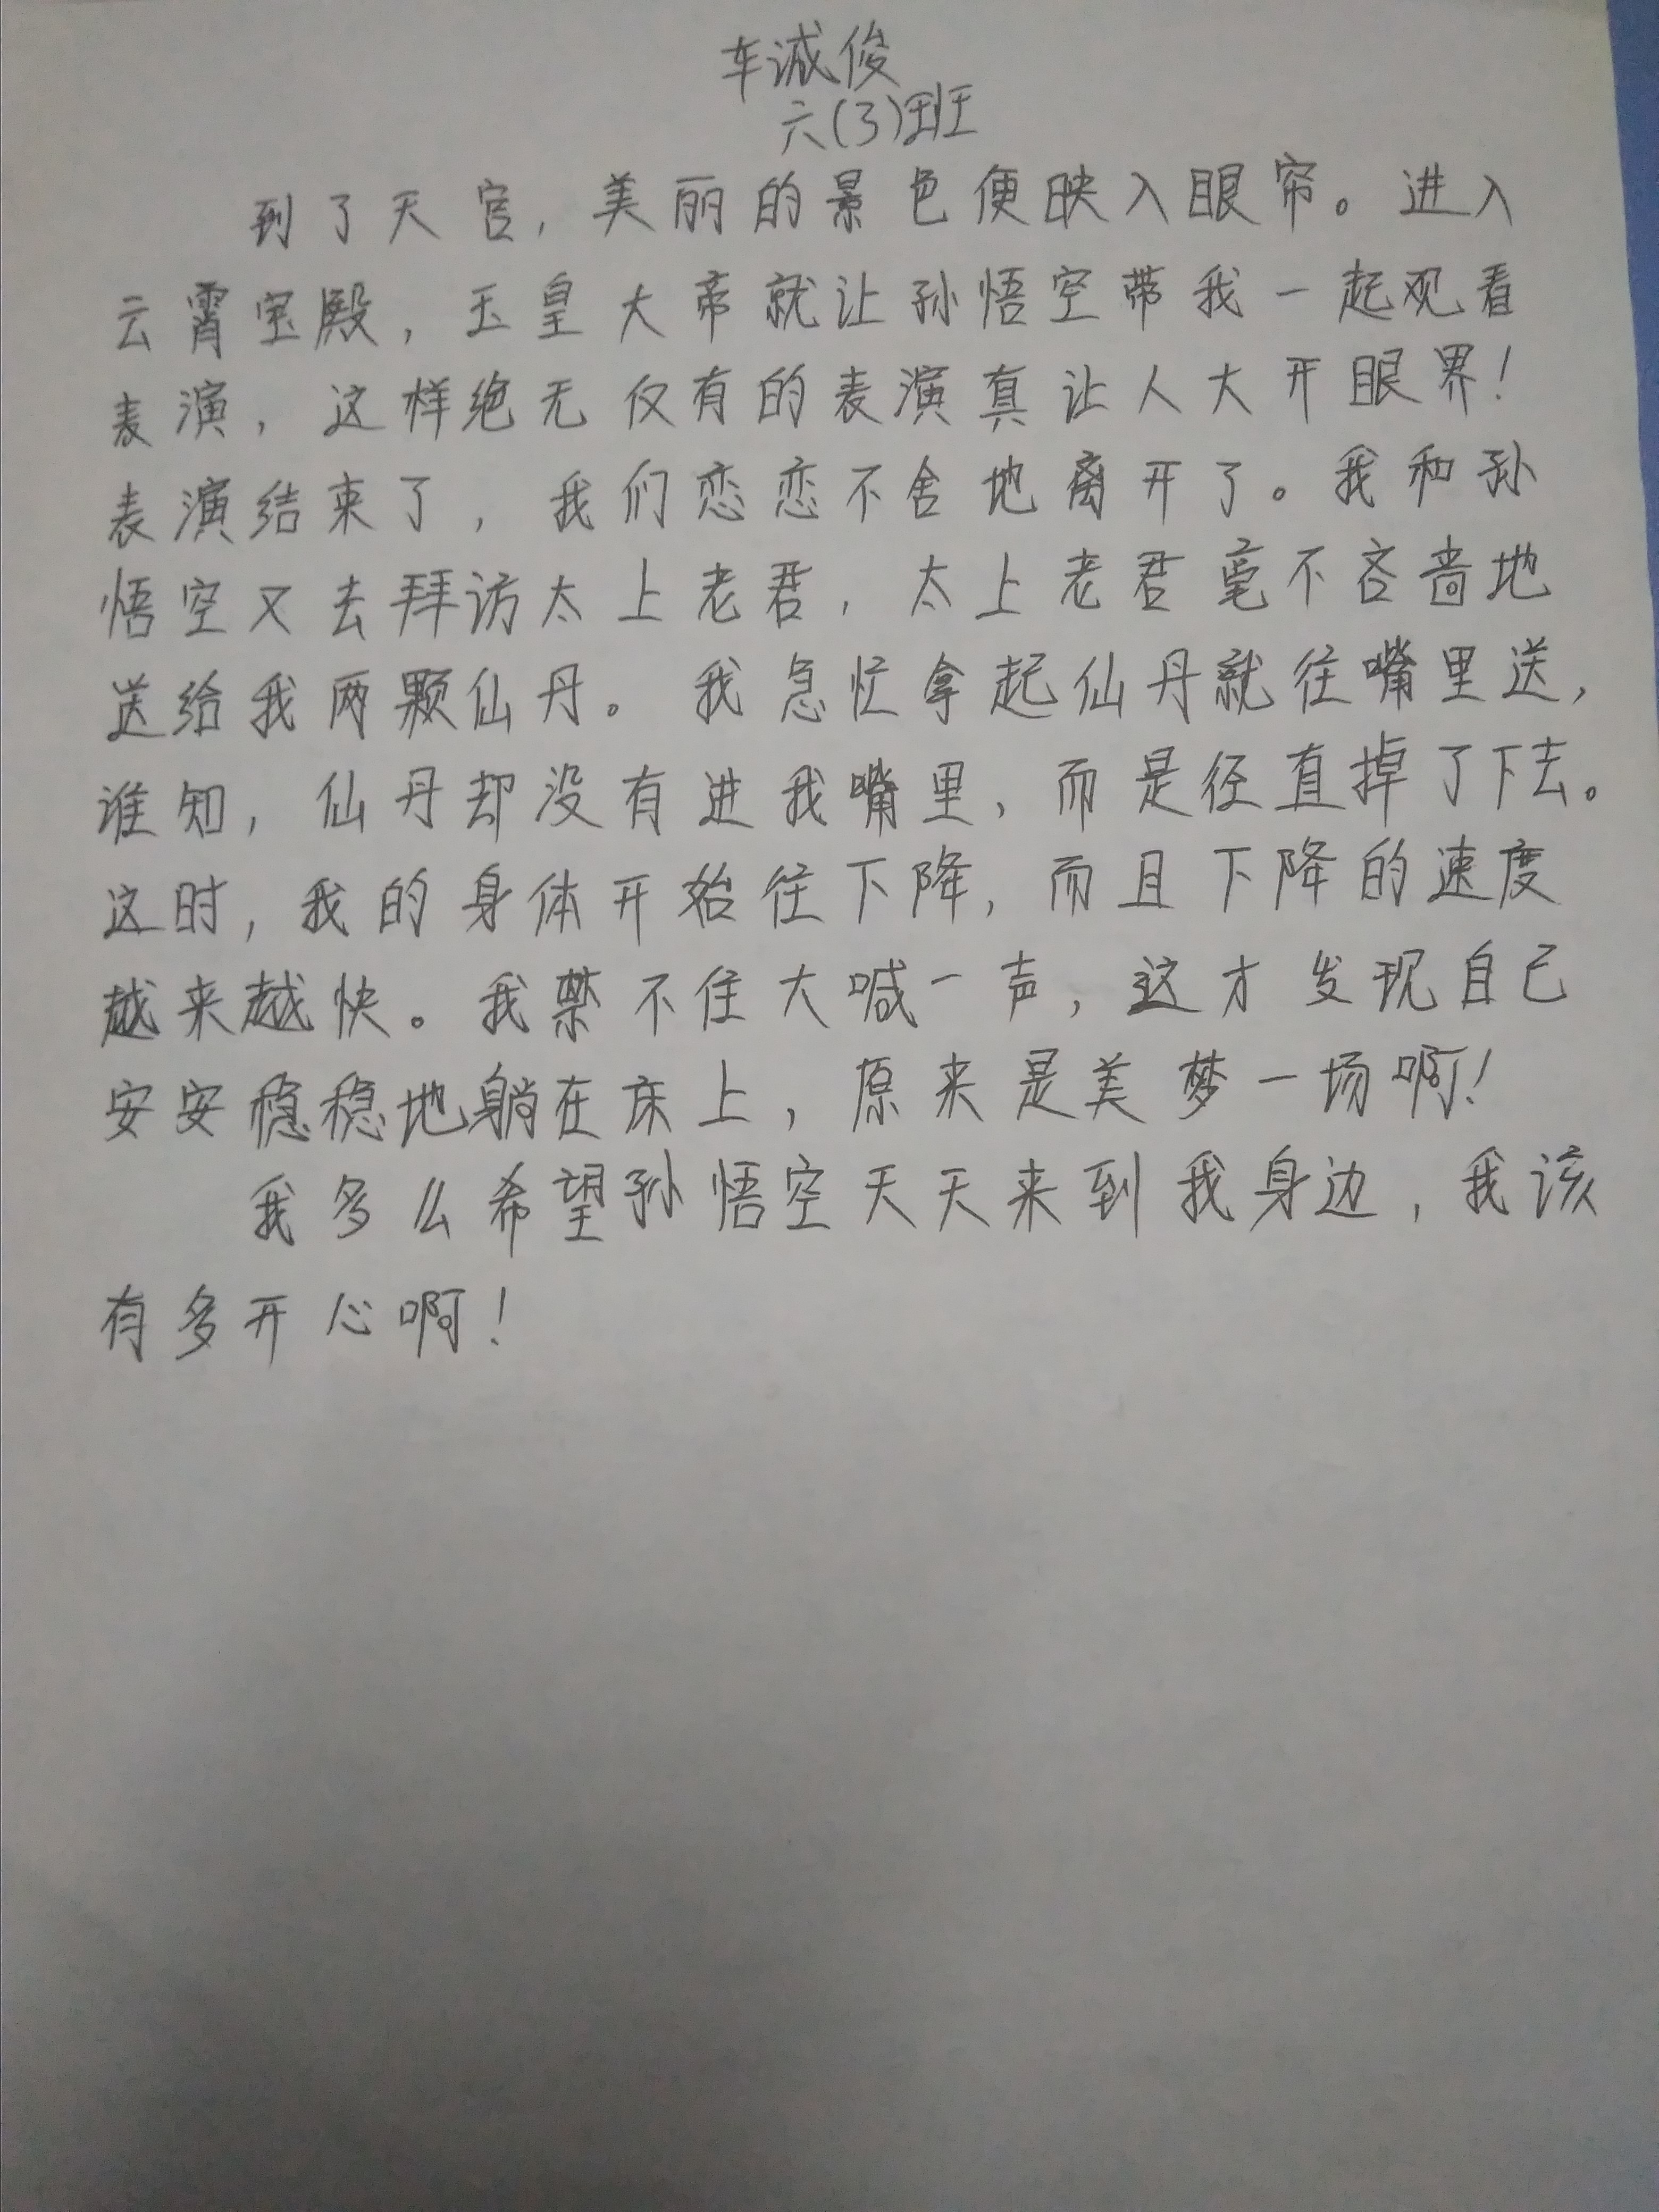 车诚俊
六(3)班
到了天宫，美丽的景色便映入眼帘。进入
云霄宝殿，玉皇大帝就让孙悟空带我一起观看
表演，这样绝无仅有的表演真让人大开眼界！
表演结束了，我们恋恋不舍地离开了。我和孙
悟空又去拜访太上老君，太上老君毫不吝啬地
送给我两颗仙丹。我急忙拿起仙丹就往嘴里送，
谁知，仙丹却没有进我嘴里，而是径直掉了下去。
这时，我的身体开始往下降，而且下降的速度
越来越快。我禁不住大喊一声，这才发现自己
安安稳稳地躺在床上，原来是美梦一场啊！
我多么希望孙悟空天天来到我身边，我该
有多开心啊！